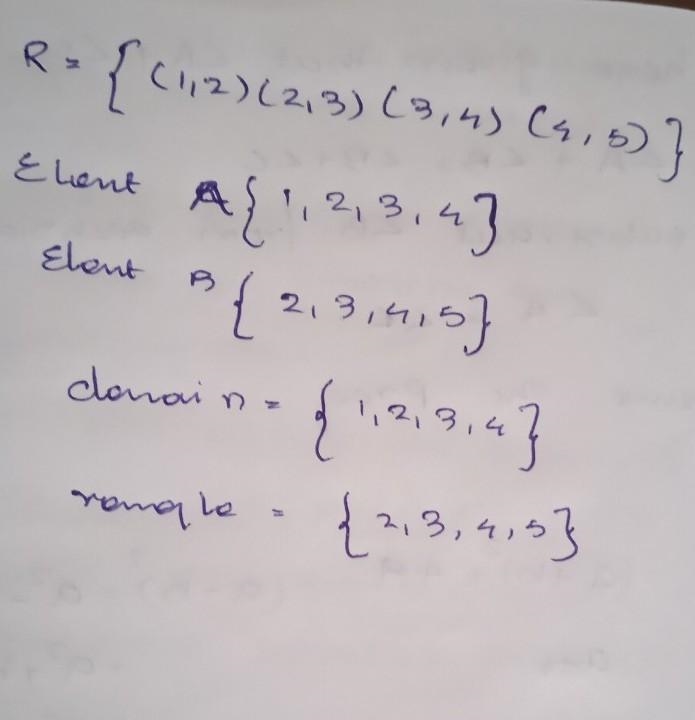 R = { (1,2) (2,3) (3,4) (4,5) }
Elent A { 1, 2, 3, 4 }
Elent B { 2, 3, 4, 5 }
domain = { 1, 2, 3, 4 }
= { 2, 3, 4, 5 }